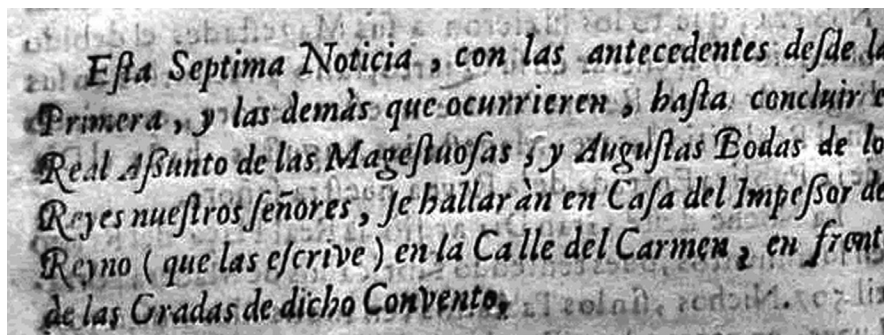 Eſta Septima Noticia, con las antecedentes deſde la
Primera, y las demàs que ocurrieren, haſta concluir e
Real Aſsunto de las Mageſtuoſas, y Auguſtas Bodas de lo
Reyes nueſtros ſeñores, ſe hallaràn en Caſa del Impeſſor de
Reyno (que las eſcrive) en la Calle del Carmen, en front
de las Gradas de dicho Convento.